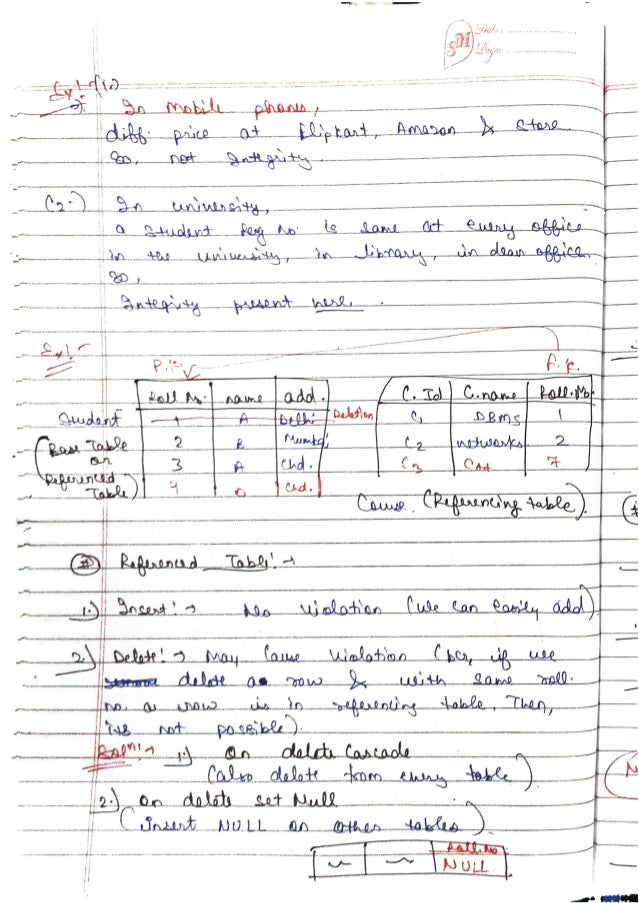 SM
Date
Page
Ex!- (1.)
In mobile phones,
diff. price at Flipkart, Amazon & Store
So, not Integrity.
(2.) In university,
a Student Reg No. is same at every office
in the university, in library, in dean office.
So,
Integrity present here.
Ex!-
P.K. F.K.
Roll No. name add. C. Id C.name Roll.No.
Student 1 A Delhi Deletion C1 DBMS 1
(Base Table 2 B Mumbai C2 networks 2
or 3 A Chd. C3 7
Referenced Table) 4 D Chd.
Course. (Referencing table).
(#) Referenced Table! →
1.) Insert! → No violation (We can easily add)
2.) Delete! → May Cause Violation (bcz, if we
delete a row & with same roll.
no. a row is in referencing table, Then,
its not possible).
Soln!→ 1.) On delete Cascade
(also delete from every table).
2.) On delete set Null
(insert NULL on other tables).
Roll.No
NULL